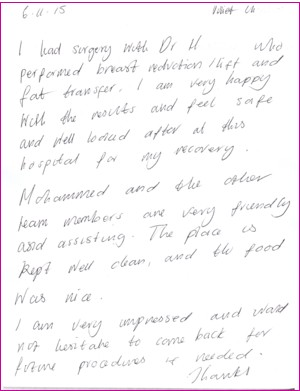 6-11-15
I had surgery with Dr H who
performed breast reduction/lift and
fat transfer. I am very happy
with the results and feel safe
and well looked after at this
hospital for my recovery.
Mohammed and the other
team members are very friendly
and assisting. The place is
kept well clean, and the food
was nice.
I am very impressed and
not hesitate to come back for
future procedures needed.
Thanks